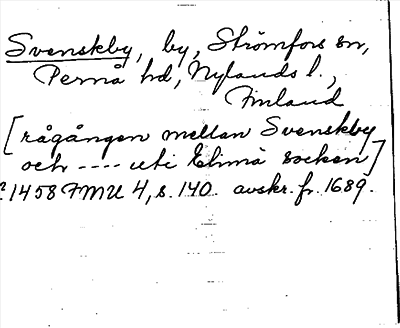 Svenskby, by, Strömfors sn,
Pernå hd, Nylands l.,
Finland
[rågången mellan Svenskby
och ---- uti Elimä socken]
1458 FMU 4, s. 140. avskr. fr. 1689.